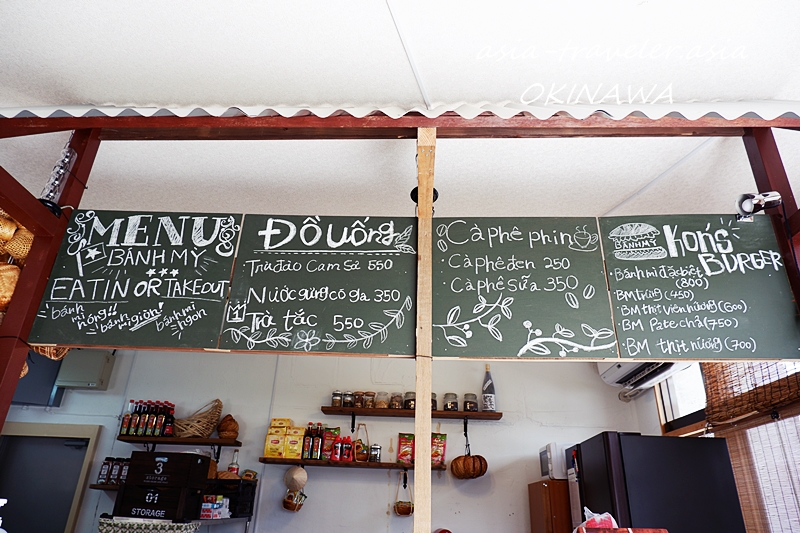 asia-traveler.asia
OKINAWA
MENU
BÁNH MỲ
EAT IN OR TAKEOUT
bánh mì nóng!!
bánh mì giòn!
bánh mì ngon
Đồ uống
Trà đào Cam Sả 550
Nước gừng có ga 350
Trà tắc 550
Cà phê phin
Cà phê đen 250
Cà phê Sữa 350
BÁNH MỲ
Kon's
BURGER
Bánh mì đặc biệt
(800)
BM trứng (450)
BM thịt viên nướng (600)
BM Pate chả (750)
BM thịt nướng (700)
3
storage
01
STORAGE